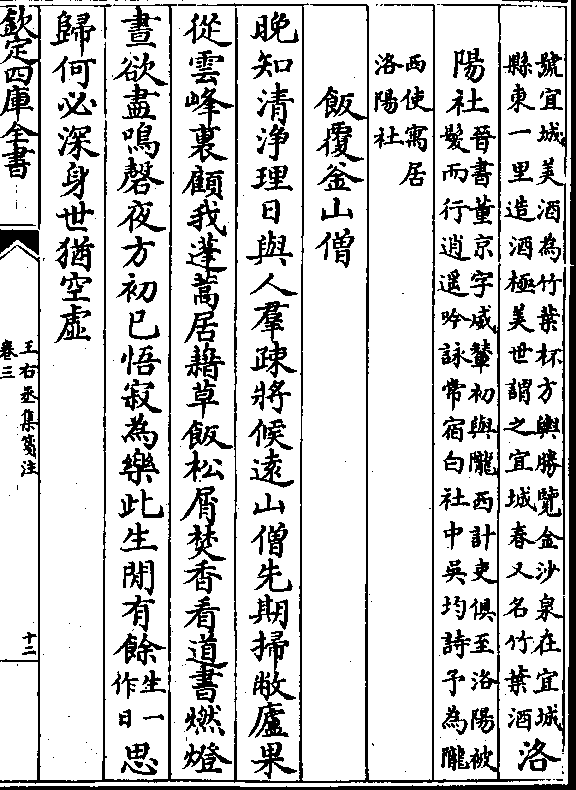 號宜城美酒為竹葉杯方輿勝覽金沙泉在宜城
縣東一里造酒極美世謂之宜城春又名竹葉酒
洛
陽社
晉書董京字威輦初與隴西計吏俱至洛陽被
髮而行逍遥吟詠常宿白社中吳均詩予為隴
西使寓居
洛陽社
飯覆釜山僧
晚知清淨理日與人羣疎將候遠山僧先期掃敝廬果
從雲峰裏顧我蓬蒿居藉草飯松屑焚香看道書燃燈
晝欲盡鳴磬夜方初已悟寂為樂此生閒有餘生一作日思
歸何必深身世猶空虛
欽定四庫全書
王右丞集箋注
卷三
十二